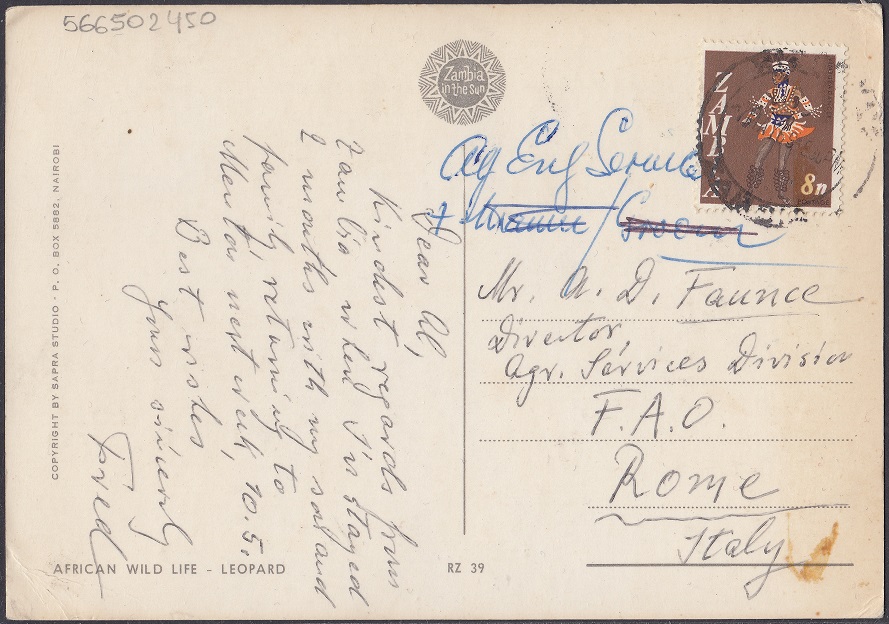 566502450
Zambia
in the Sun
ZAMBIA
8n
Ag Eng Service
Mr. A. D. Faunce
Director,
Agr. Services Division
F.A.O.
Rome
Italy
Dear Al,
Kindest regards from
Zambia, when I've stayed
2 months with my son and
family, returning to
next week, 10.5.
Best wishes
Yours sincerely
Fred
COPYRIGHT BY SAPRA STUDIO · P. O. BOX 5882, NAIROBI
AFRICAN WILD LIFE - LEOPARD
RZ 39